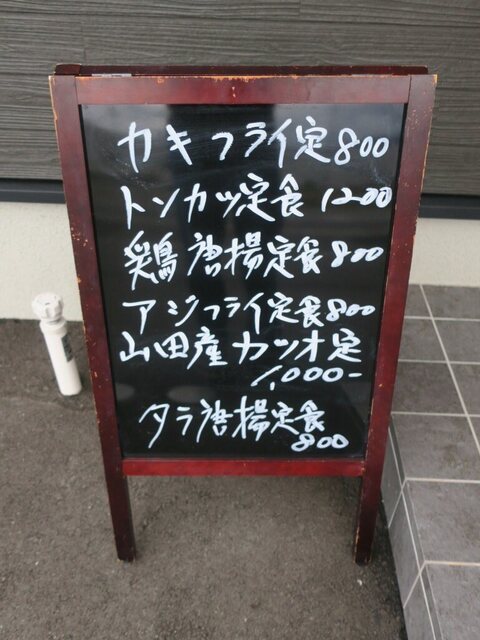 カキフライ定800
トンカツ定食 1200
鶏唐揚定食800
アジフライ定食800
山田産カツオ定
1,000-
タラ唐揚定食
800